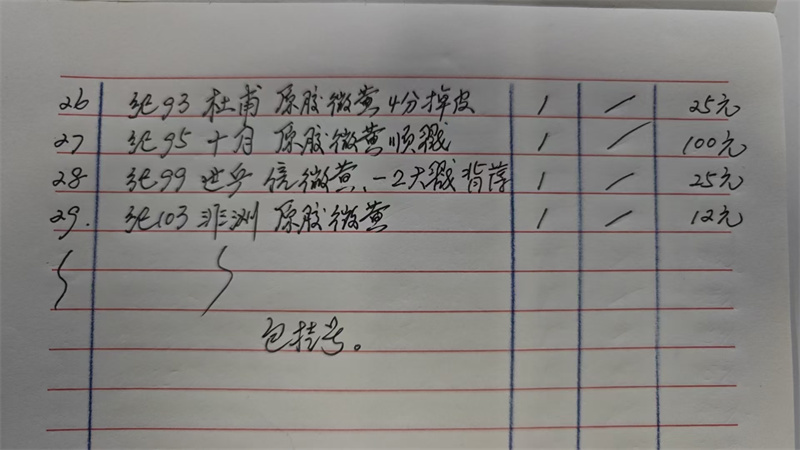 26 纪93 杜甫 原胶微黄 4分掉皮 1 / 25元
27 纪95 十月 原胶微黄 顺戳 1 / 100元
28 纪99 世乒 信微黄、-2大戳 背薄 1 / 25元
29. 纪103 非洲 原胶微黄 1 / 12元
包挂号。